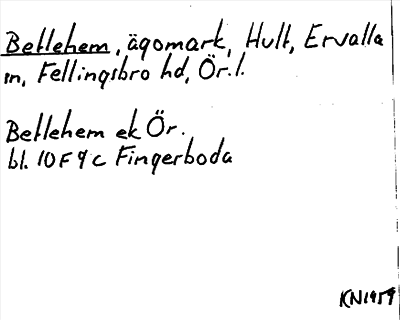 Betlehem, ägomark, Hult, Ervalla
sn, Fellingsbro hd, Ör. l.
Betlehem ek Ör.
bl. 10F9c Fingerboda
KN1959